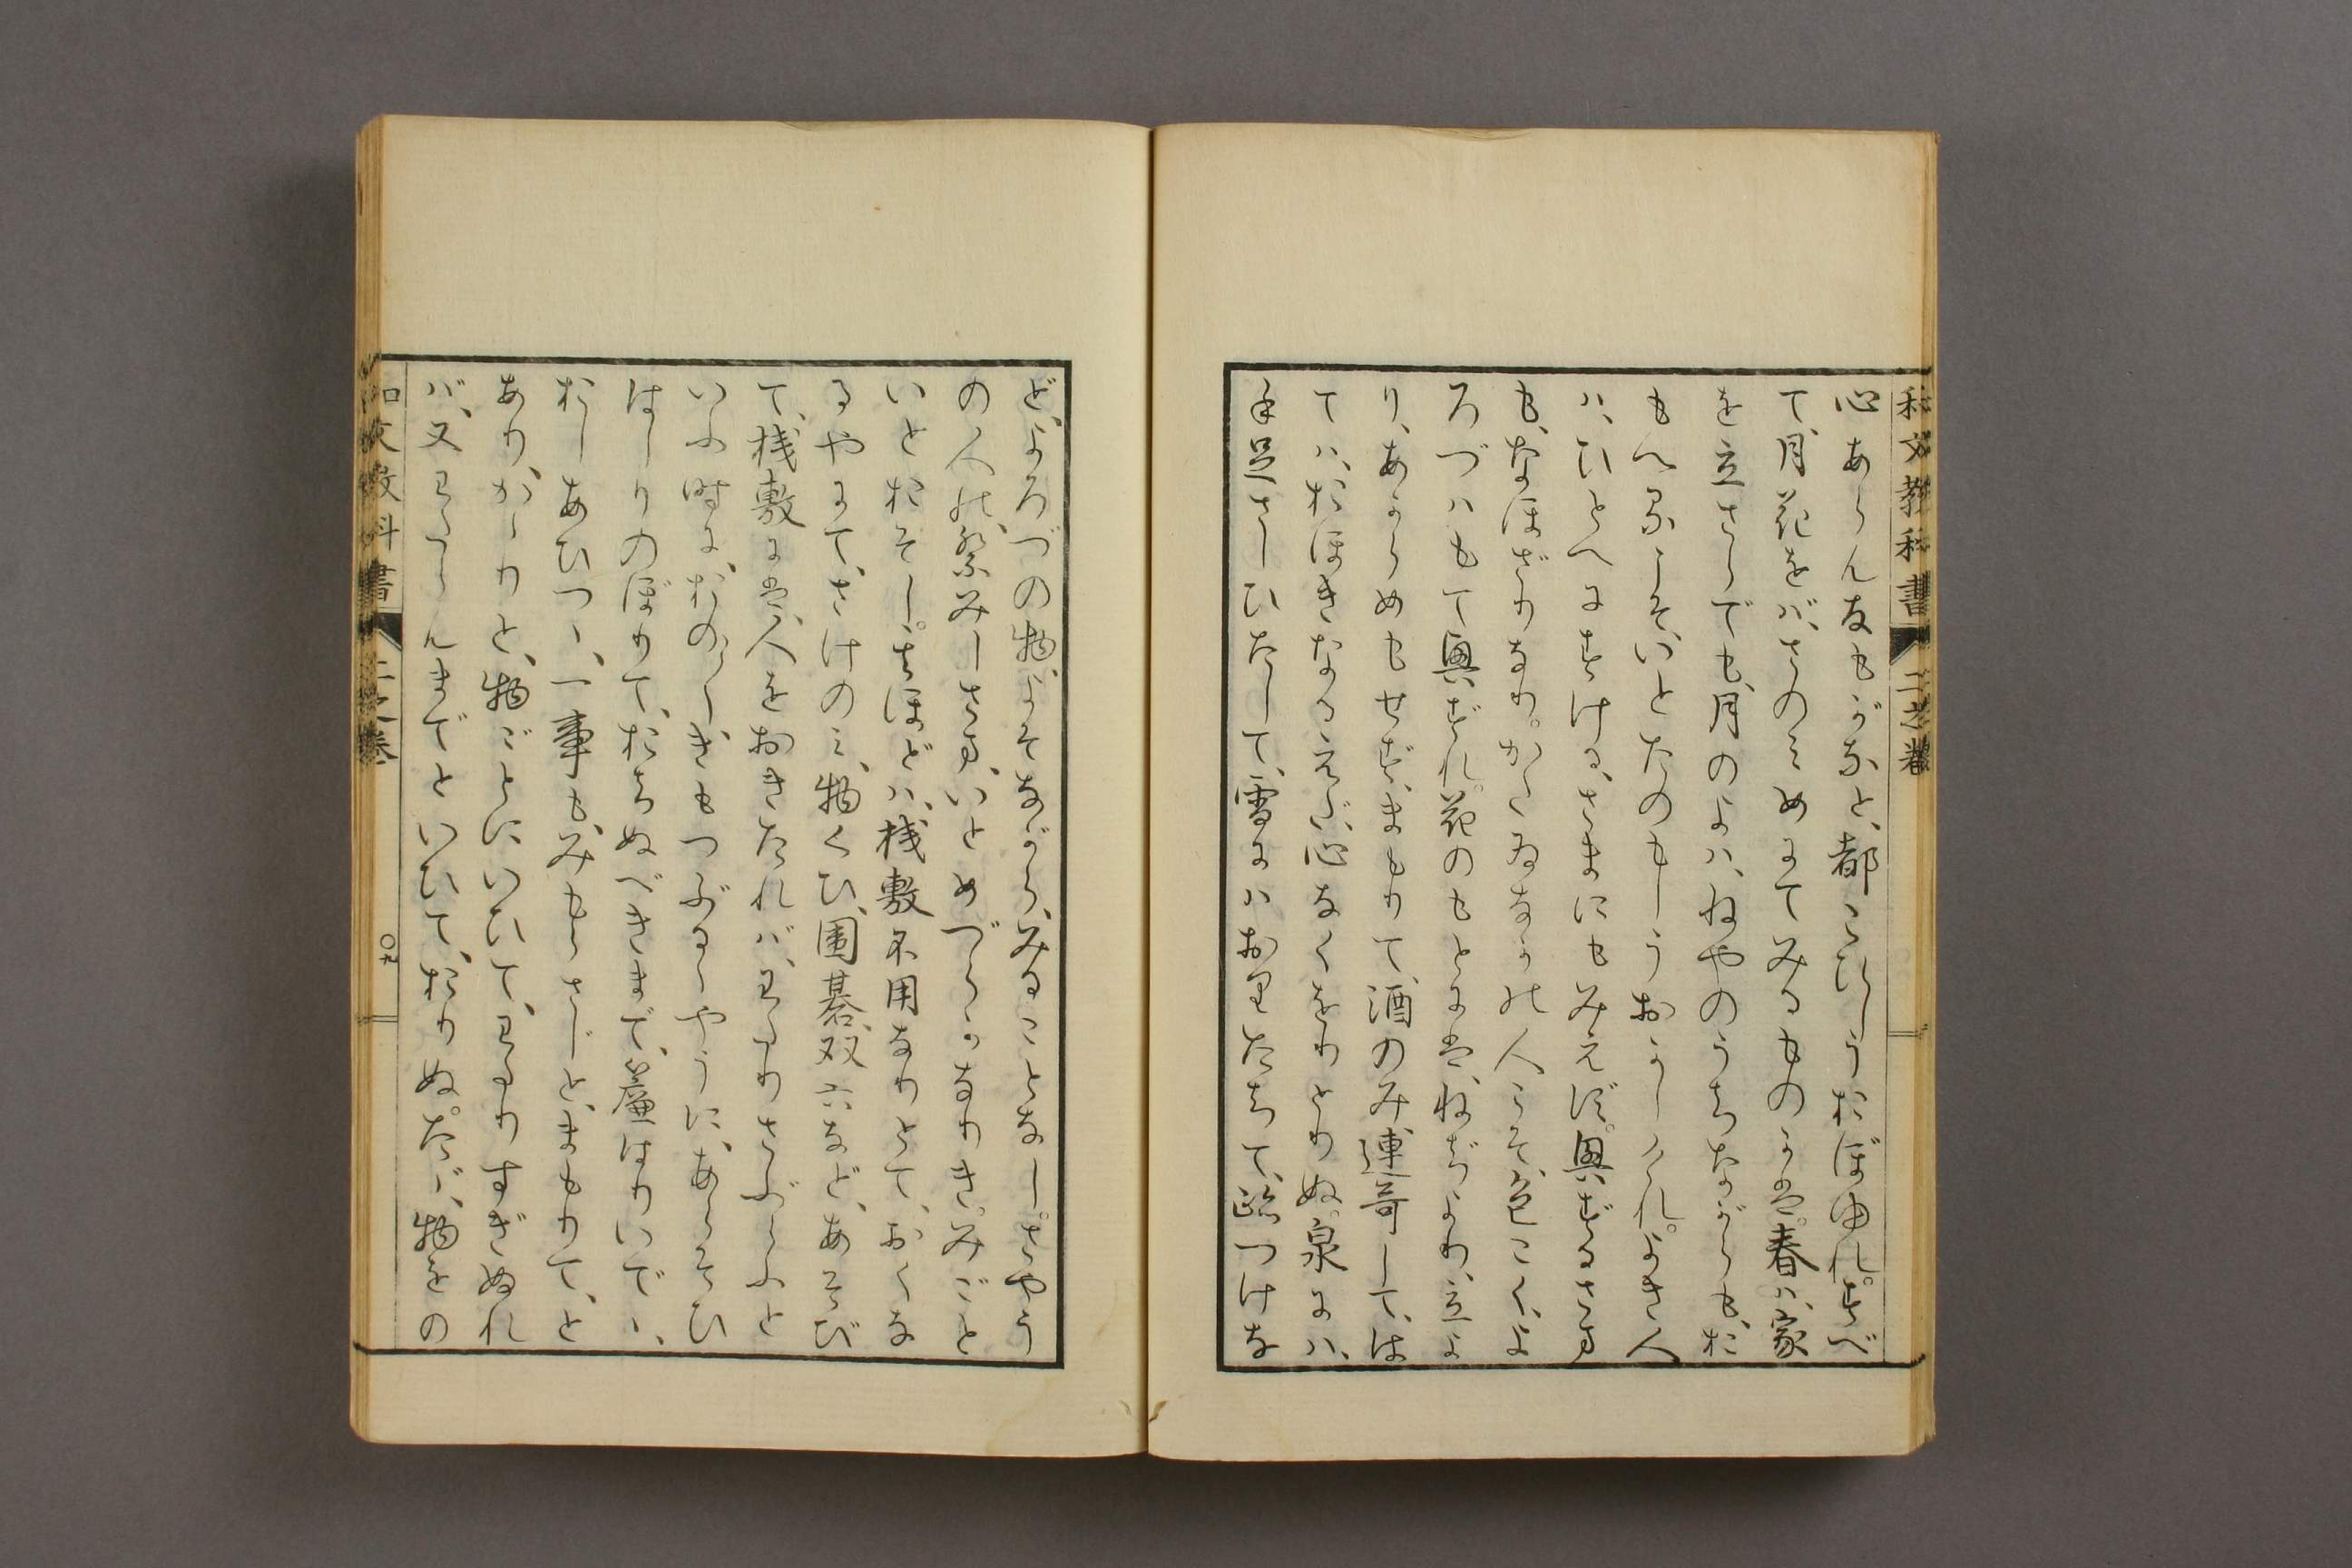 和文教科書 二之巻
心あらん友もがなと、都こひしうおぼゆれ。すべ
て、月花をば、さのみめにてみるものかは。春ハ、家
を立さらでも、月のよハ、ねやのうちながらも、お
もへるこそ、いとたのもしうおかしけれ。よき人
ハ、ひとへにすける、さまにもみえず。興ずるさま
も、なほざりなり。かたゐなかの人こそ、色こく、よ
ろづハもて興ずれ。花のもとには、ねぢより、立よ
り、あからめもせず、まもりて、酒のみ連哥して、は
てハ、おほきなるえだ、心なくをりとりぬ。泉にハ、
手足さしひたして、雪にハおりたちて、跡つけな
ど、よろづの物、よそながら、みることなし。さやう
の人の、祭みしさま、いとめづらかなりき。みごと
いとおそし。そほどハ、桟敷不用なりとて、おくな
るやにて、さけのみ、物くひ、囲碁、双六など、あそび
て、桟敷には、人をおきたれバ、わたりさぶらふと
いふ時に、おの〳〵きもつぶるゝやうに、あらそひ
はしりのぼりて、おちぬべきまで、簾はりいでゝ、
おしあひつゝ、一事も、みもらさじと、まもりて、と
あり、かゝりと、物ごとにいひて、わたりすぎぬれ
バ、又わたらんまでといひて、おりぬ。たゞ、物をの
和文教科書 二之巻 〇九